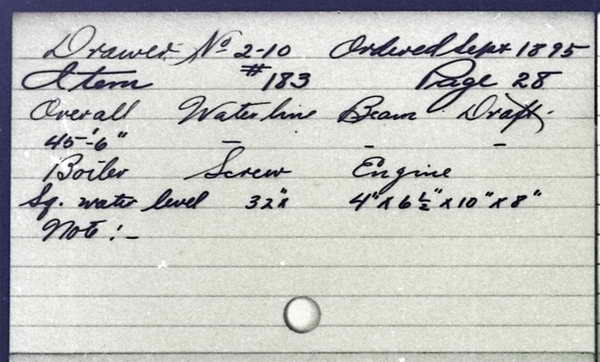 Drawer No 2-10 Ordered Sept 1895
Item #183 Page 28
Overall Waterline Beam Draft.
45'-6" - - -
Boiler Screw Engine
Sq. water level 32"x 4"x6½"x10"x8"
Note:-